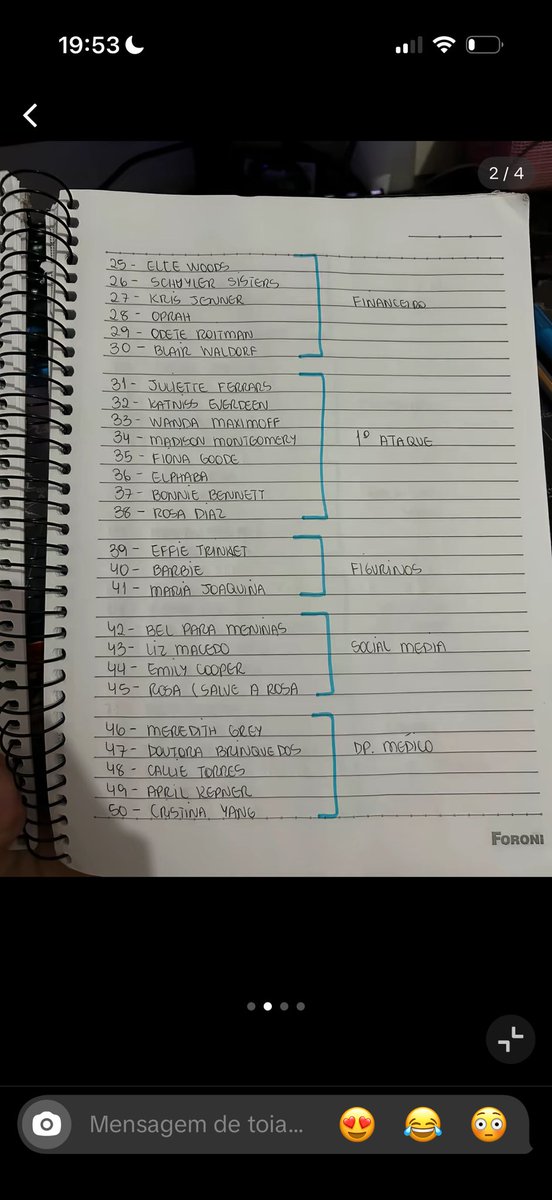 19:53
2 / 4
25 - ELLE WOODS
26 - SCHUYLER SISTERS
27 - KRIS JENNER
28 - OPRAH
29 - ODETE ROITMAN
30 - BLAIR WALDORF
FINANCEIRO
31 - JULIETTE FERRARS
32 - KATNISS EVERDEEN
33 - WANDA MAXIMOFF
34 - MADISON MONTGOMERY
35 - FIONA GOODE
36 - ELPHABA
37 - BONNIE BENNETT
38 - ROSA DIAZ
1º ATAQUE
39 - EFFIE TRINKET
40 - BARBIE
41 - MARIA JOAQUINA
FIGURINOS
42 - BEL PARA MENINAS
43 - LIZ MACEDO
44 - EMILY COOPER
45 - ROSA (SALVE A ROSA
SOCIAL MEDIA
46 - MEREDITH GREY
47 - DOUTORA BRINQUEDOS
48 - CALLIE TORRES
49 - APRIL KEPNER
50 - CRISTINA YANG
DP. MÉDICO
FORONI
Mensagem de toia...